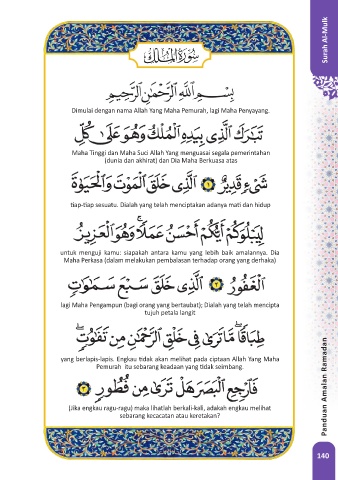 سُورَةُ الْمُلْكِ
بِسْمِ اللَّهِ الرَّحْمَٰنِ الرَّحِيمِ
Dimulai dengan nama Allah Yang Maha Pemurah, lagi Maha Penyayang.
تَبَٰرَكَ الَّذِي بِيَدِهِ الْمُلْكُ وَهُوَ عَلَىٰ كُلِّ
Maha Tinggi dan Maha Suci Allah Yang menguasai segala pemerintahan
(dunia dan akhirat) dan Dia Maha Berkuasa atas
شَيْءٍ قَدِيرٌ ١ الَّذِي خَلَقَ الْمَوْتَ وَالْحَيَوٰةَ
tiap-tiap sesuatu. Dialah yang telah menciptakan adanya mati dan hidup
لِيَبْلُوَكُمْ أَيُّكُمْ أَحْسَنُ عَمَلًا ۚ وَهُوَ الْعَزِيزُ
untuk menguji kamu: siapakah antara kamu yang lebih baik amalannya. Dia
Maha Perkasa (dalam melakukan pembalasan terhadap orang yang derhaka)
الْغَفُورُ ٢ الَّذِي خَلَقَ سَبْعَ سَمَٰوَٰتٍ
lagi Maha Pengampun (bagi orang yang bertaubat); Dialah yang telah mencipta
tujuh petala langit
طِبَاقًا ۖ مَّا تَرَىٰ فِي خَلْقِ الرَّحْمَٰنِ مِن تَفَٰوُتٍ ۖ
yang berlapis-lapis. Engkau tidak akan melihat pada ciptaan Allah Yang Maha
Pemurah itu sebarang keadaan yang tidak seimbang.
فَارْجِعِ الْبَصَرَ هَلْ تَرَىٰ مِن فُطُورٍ ٣
(Jika engkau ragu-ragu) maka lihatlah berkali-kali, adakah engkau melihat
sebarang kecacatan atau keretakan?
Surah Al-Mulk
Panduan Amalan Ramadan
140